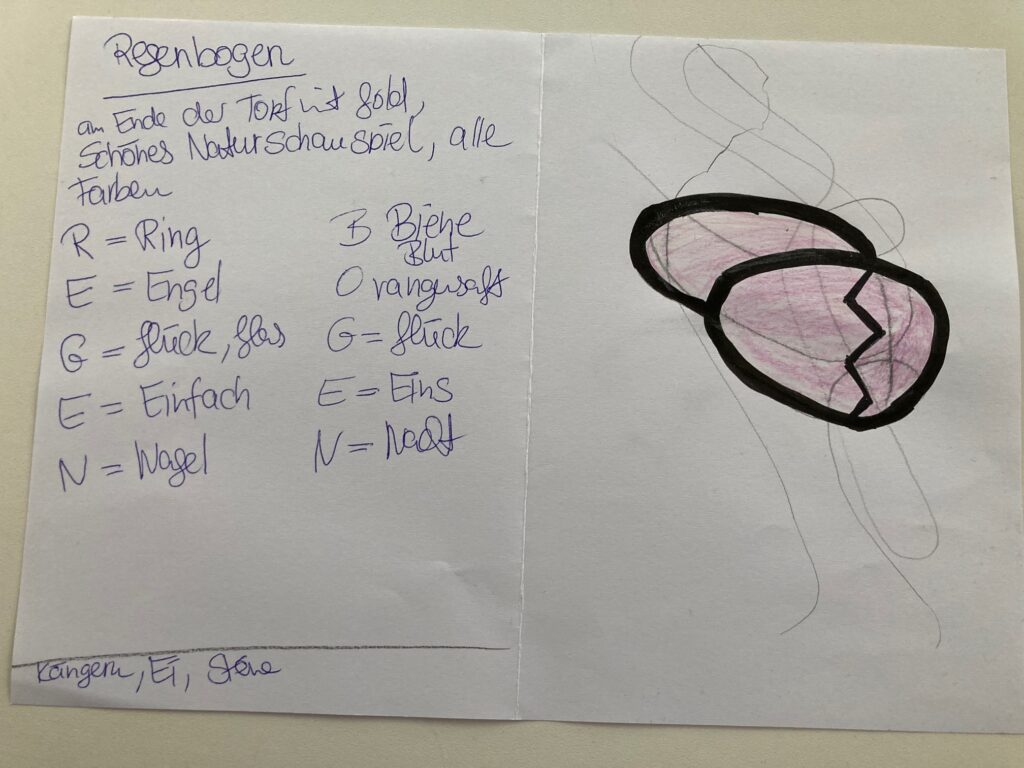 Regenbogen
am Ende der Topf mit Gold,
Schönes Naturschauspiel, alle
Farben
R = Ring
E = Engel
G = Glück, Glas
E = Einfach
N = Nagel
B Biene
Blut
Orangensaft
G = Glück
E = Eins
N = Nacht
Känguru, Ei, Steine